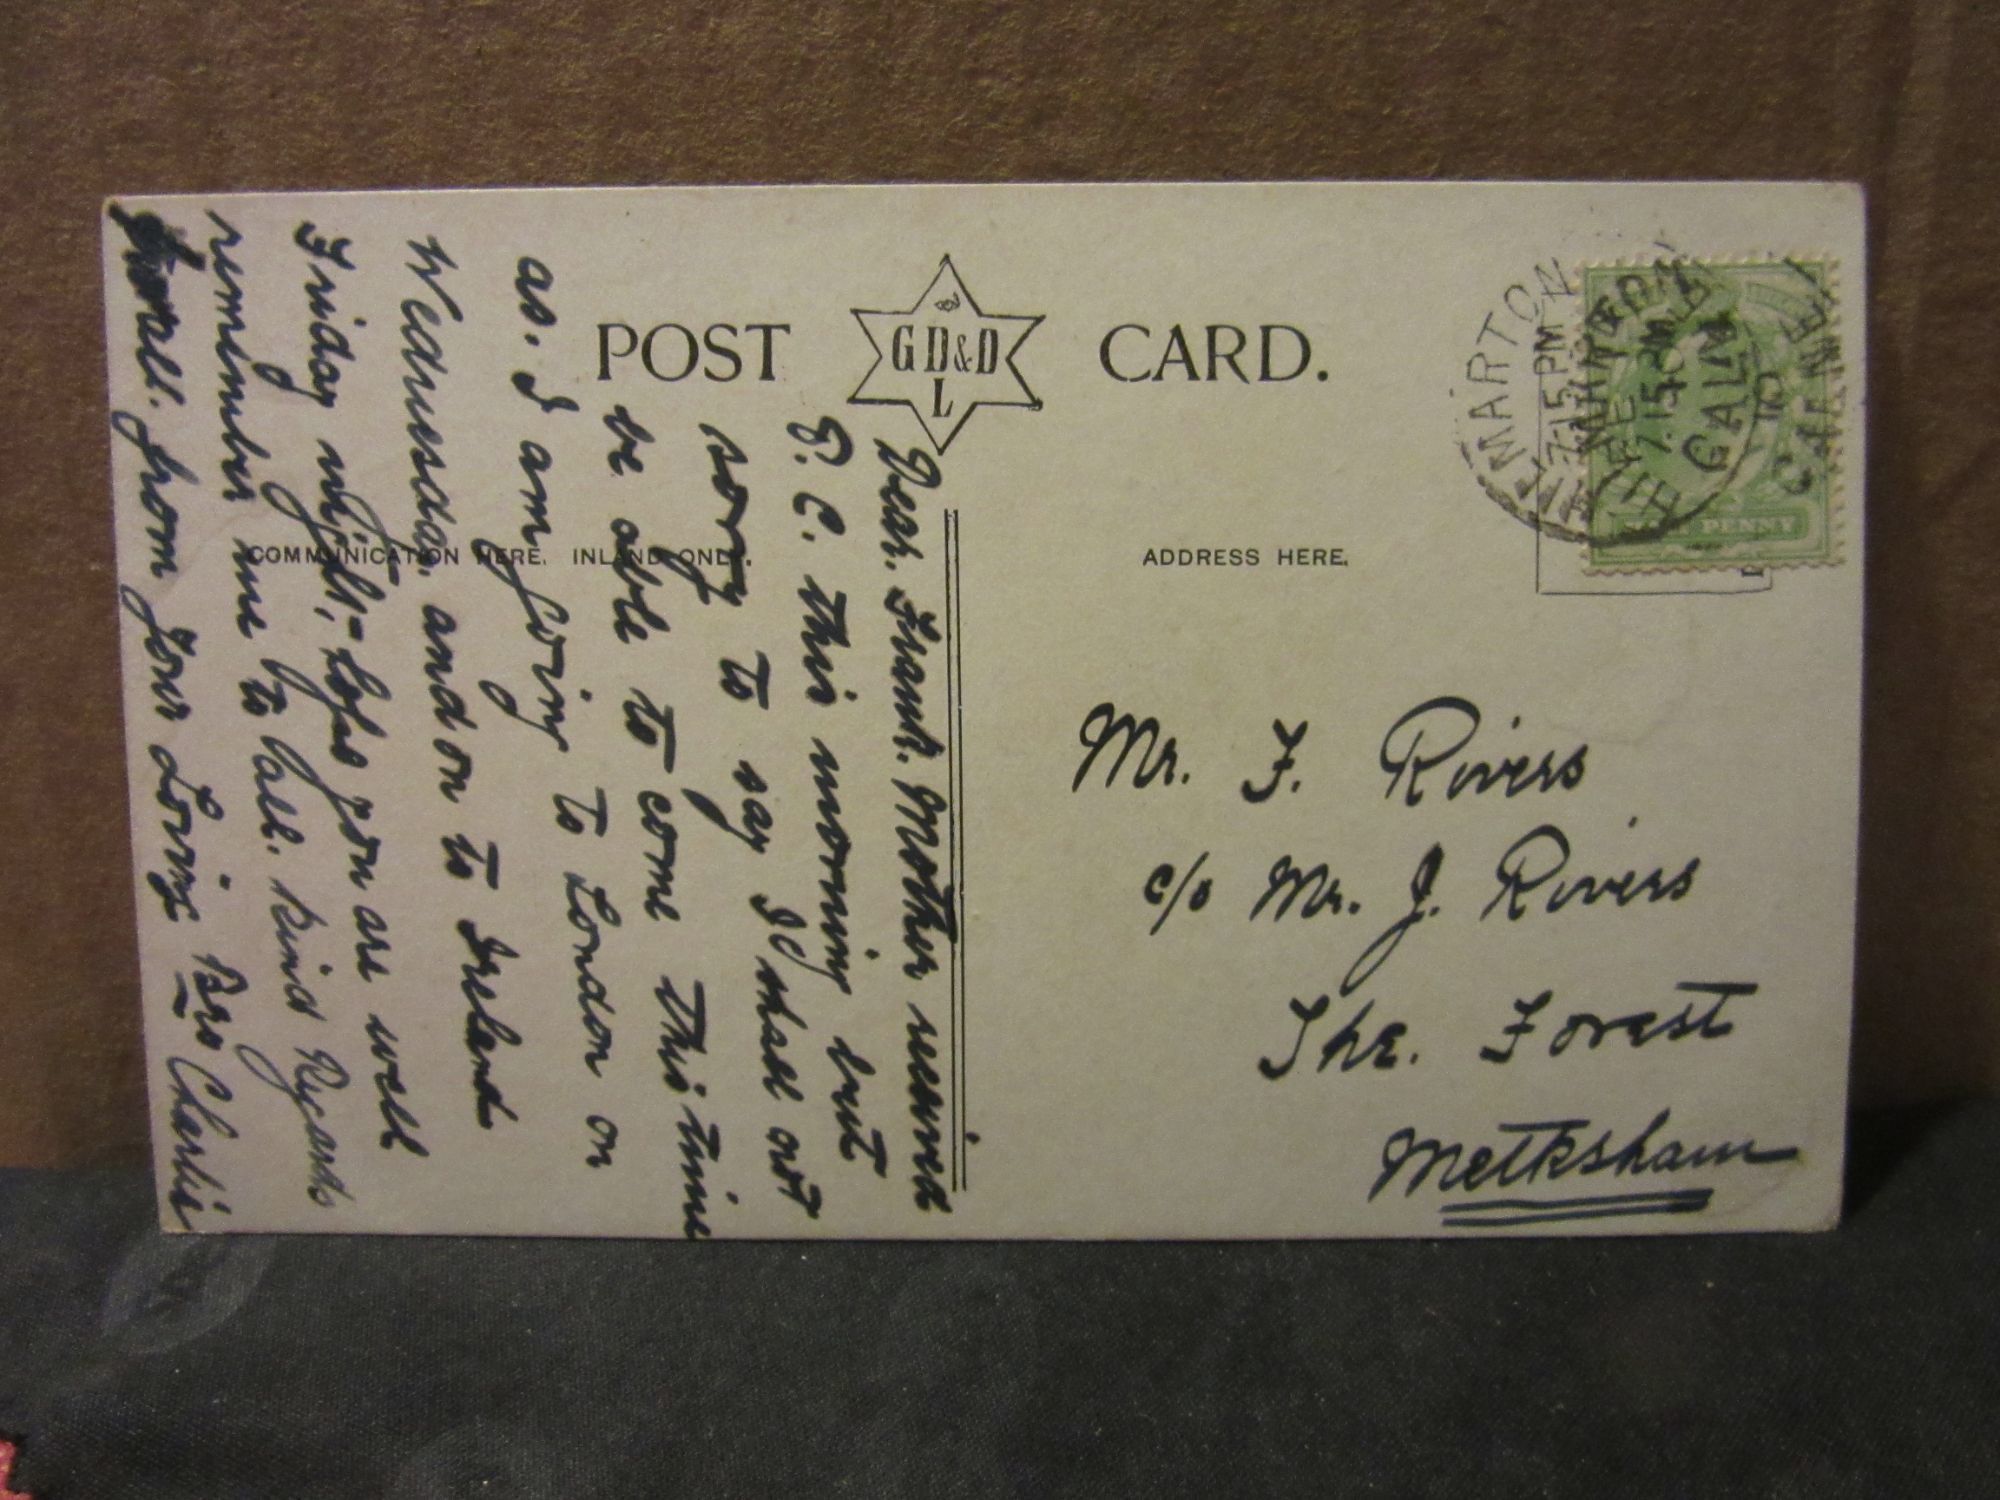 POST CARD.
GD&D
L
COMMUNICATION HERE. INLAND ONLY.
ADDRESS HERE.
HALF PENNY
HILMARTON
7.15 PM
CALNE
HILMARTON
7.15 PM
CALNE
Mr. F. Rivers
c/o Mr. J. Rivers
The. Forest
Melksham
Dear. Frank. Mother received
P. C. this morning but
sory to say I shall not
be able to come this time
as. I am going to London on
Wednesday. and on to Ireland
Friday night,- hope you are well
remember me to all. Kind Regards
to all. from your Loving Bro Charlie